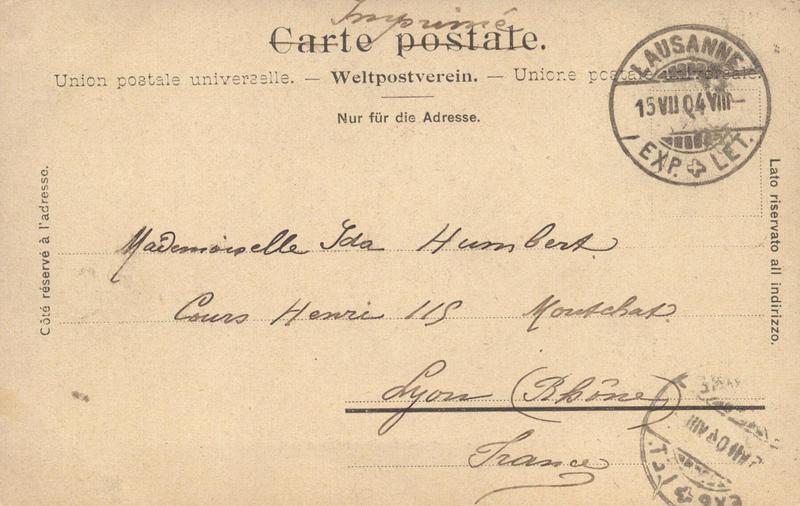 Imprimé
Carte postale.
Union postale universelle. — Weltpostverein. — Unione postale universale.
Nur für die Adresse.
LAUSANNE
15 VII 04 VIII
EXP. LET.
Côté réservé à l'adresse.
Lato riservato all indirizzo.
Mademoiselle Ida Humbert
Cours Henri 115 Montchat
Lyon (Rhône)
France